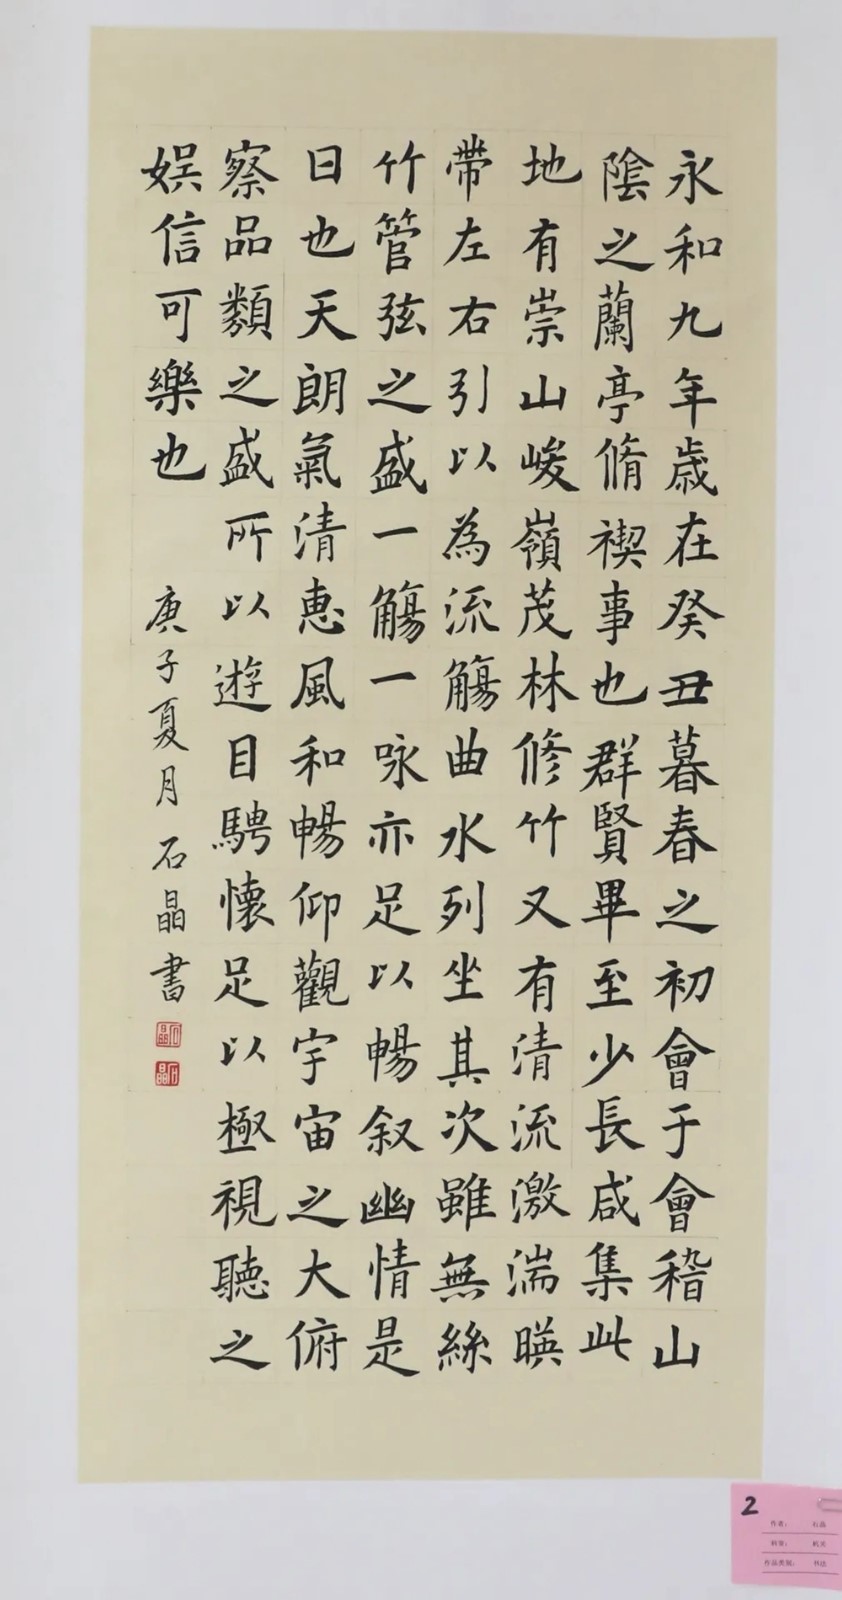 永和九年歳在癸丑暮春之初會于會稽山
陰之蘭亭脩禊事也群賢畢至少長咸集此
地有崇山峻嶺茂林修竹又有清流激湍暎
帶左右引以為流觴曲水列坐其次雖無絲
竹管弦之盛一觴一咏亦足以暢叙幽情是
日也天朗氣清惠風和暢仰觀宇宙之大俯
察品類之盛所以遊目騁懷足以極視聽之
娱信可樂也
庚子夏月 石晶書
石晶
石晶
2
作者: 石晶
科室: 机关
作品类别: 书法